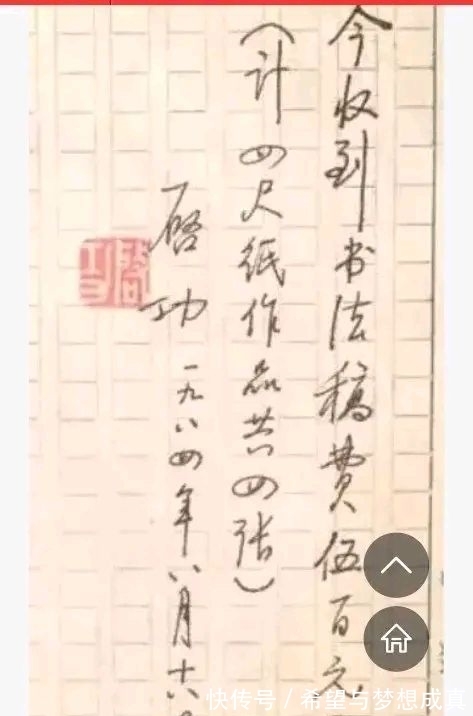 今收到书法稿费伍百元
(计四尺纸作品共四张)
启功 一九八四年八月十八日
启功
快传号 / 希望与梦想成真